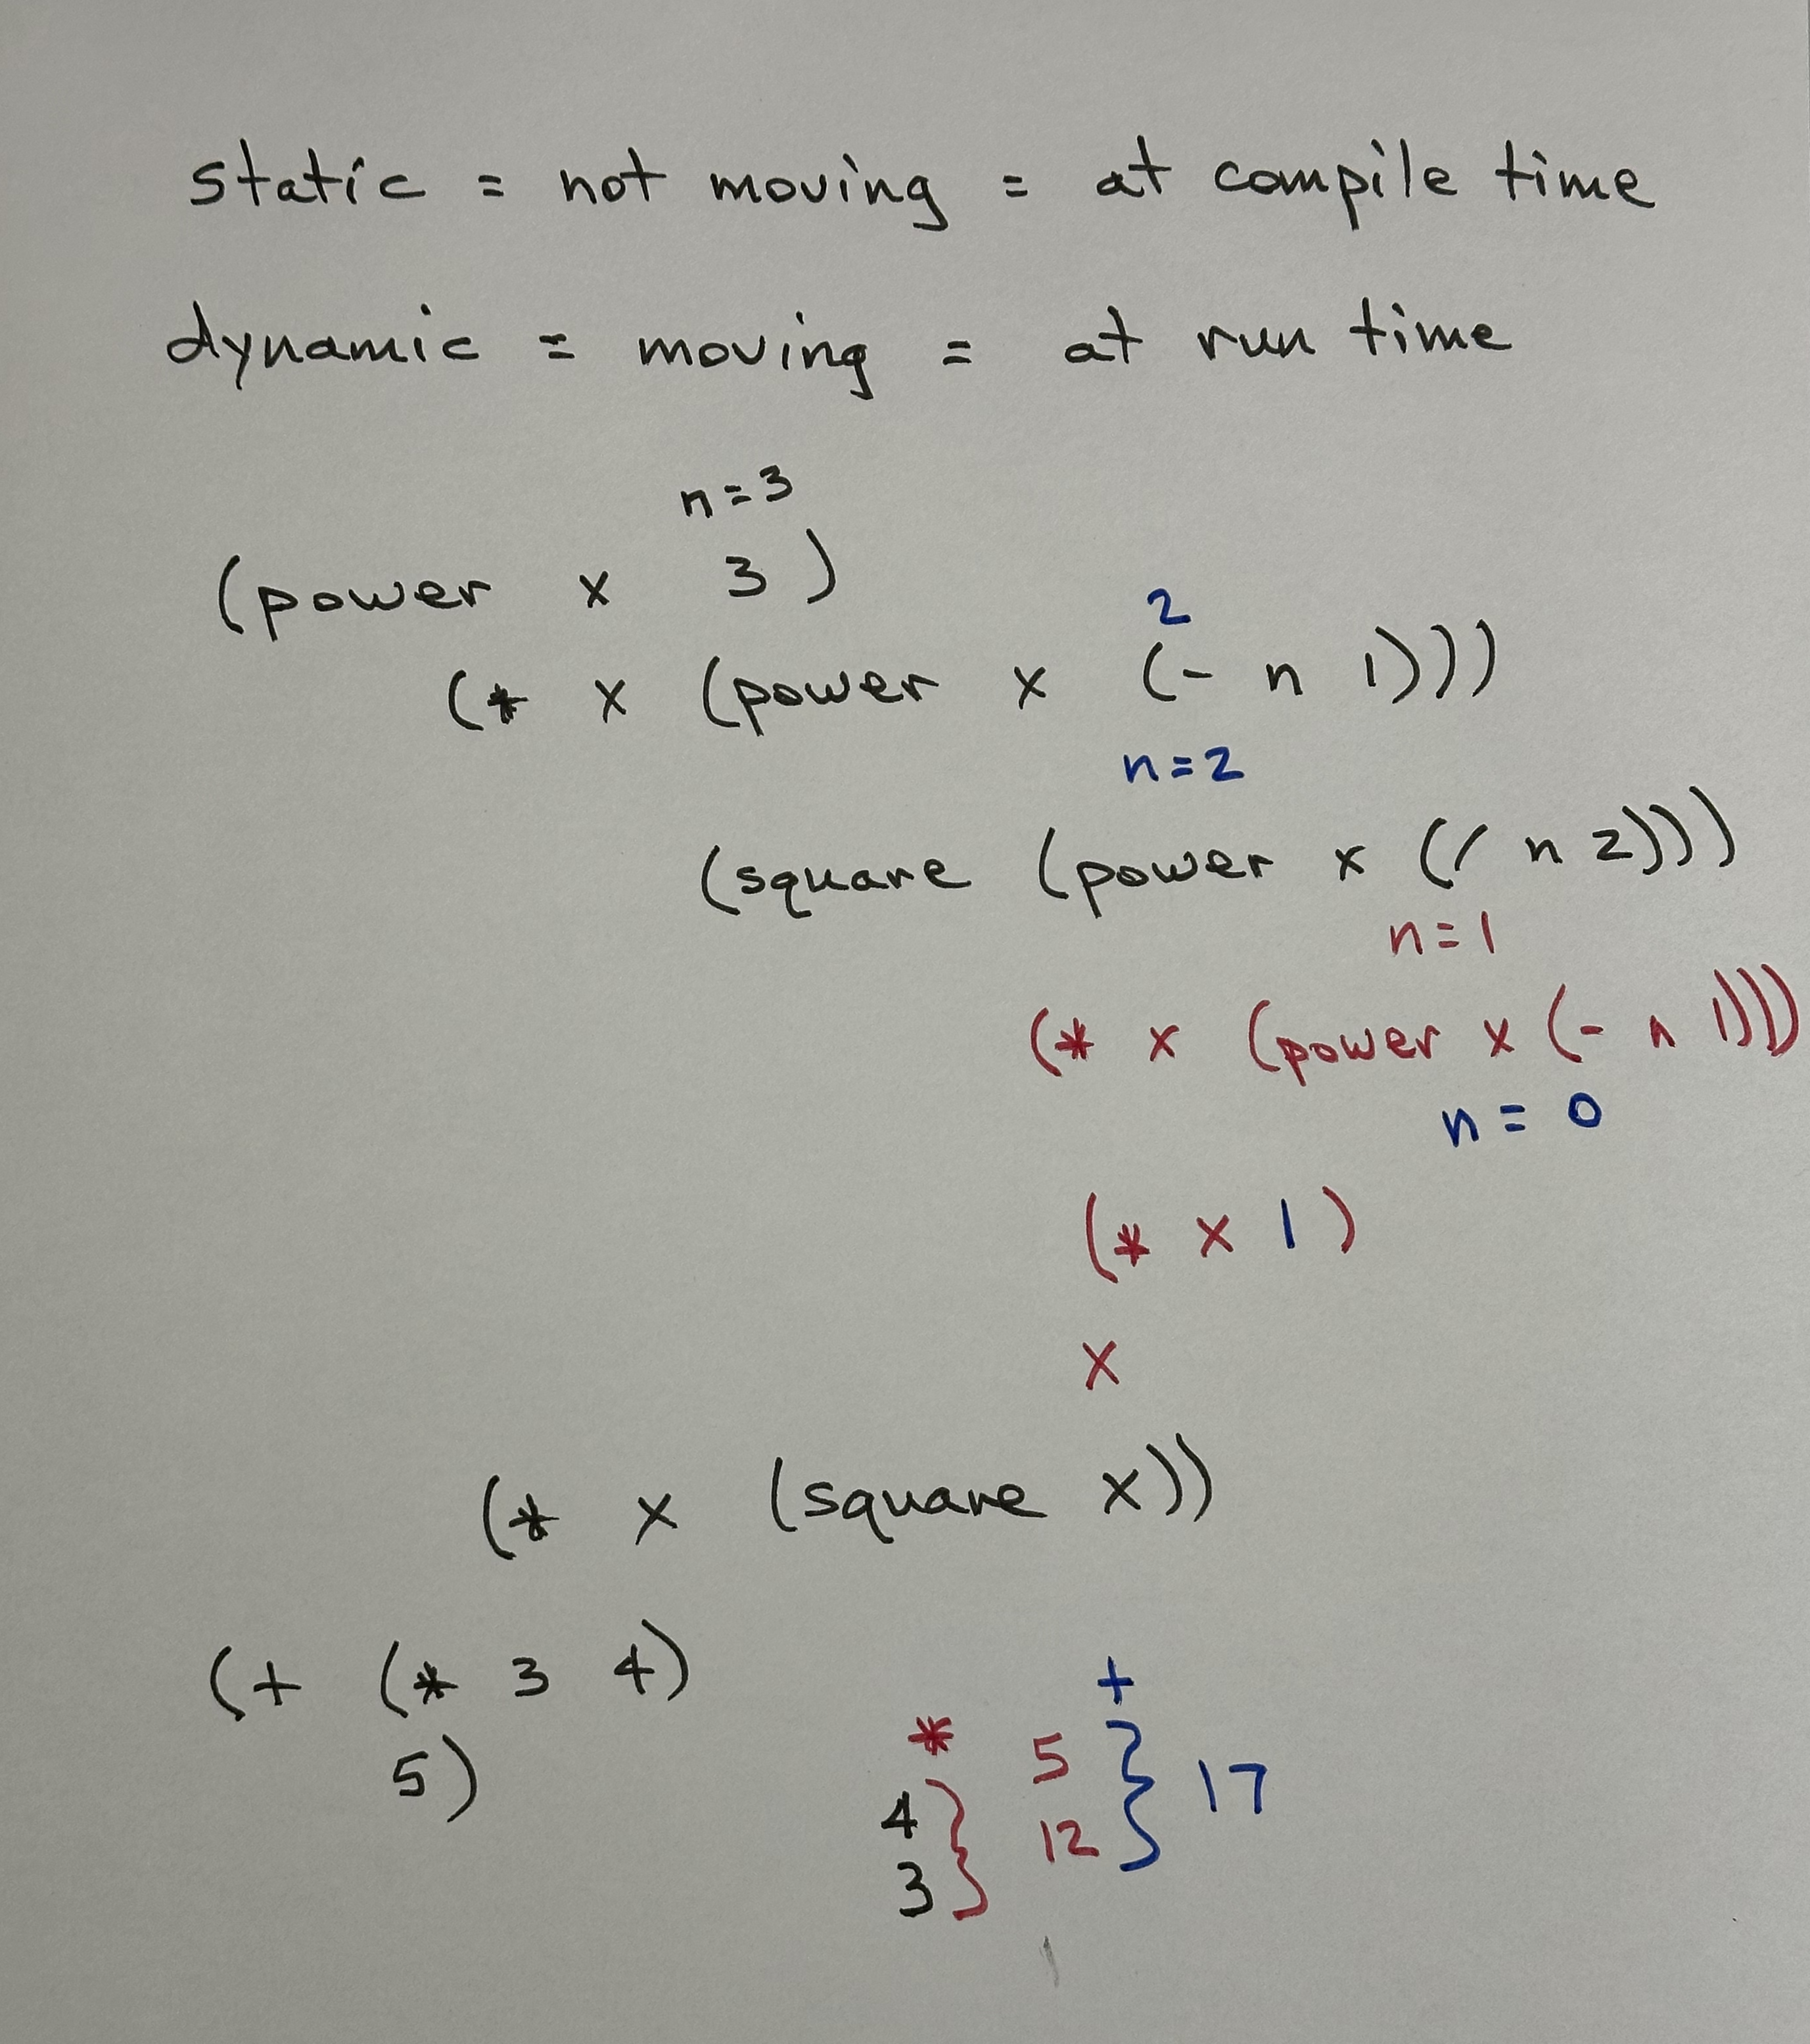 static = not moving = at compile time
dynamic = moving = at run time
n=3
(power x 3)
2
(* x (power x (- n 1)))
n=2
(square (power x (/ n 2)))
n=1
(* x (power x (- n 1)))
n = 0
(* x 1)
x
(* x (square x))
(+ (* 3 4)
5)
+
* 5
4 12 } 17
3 }